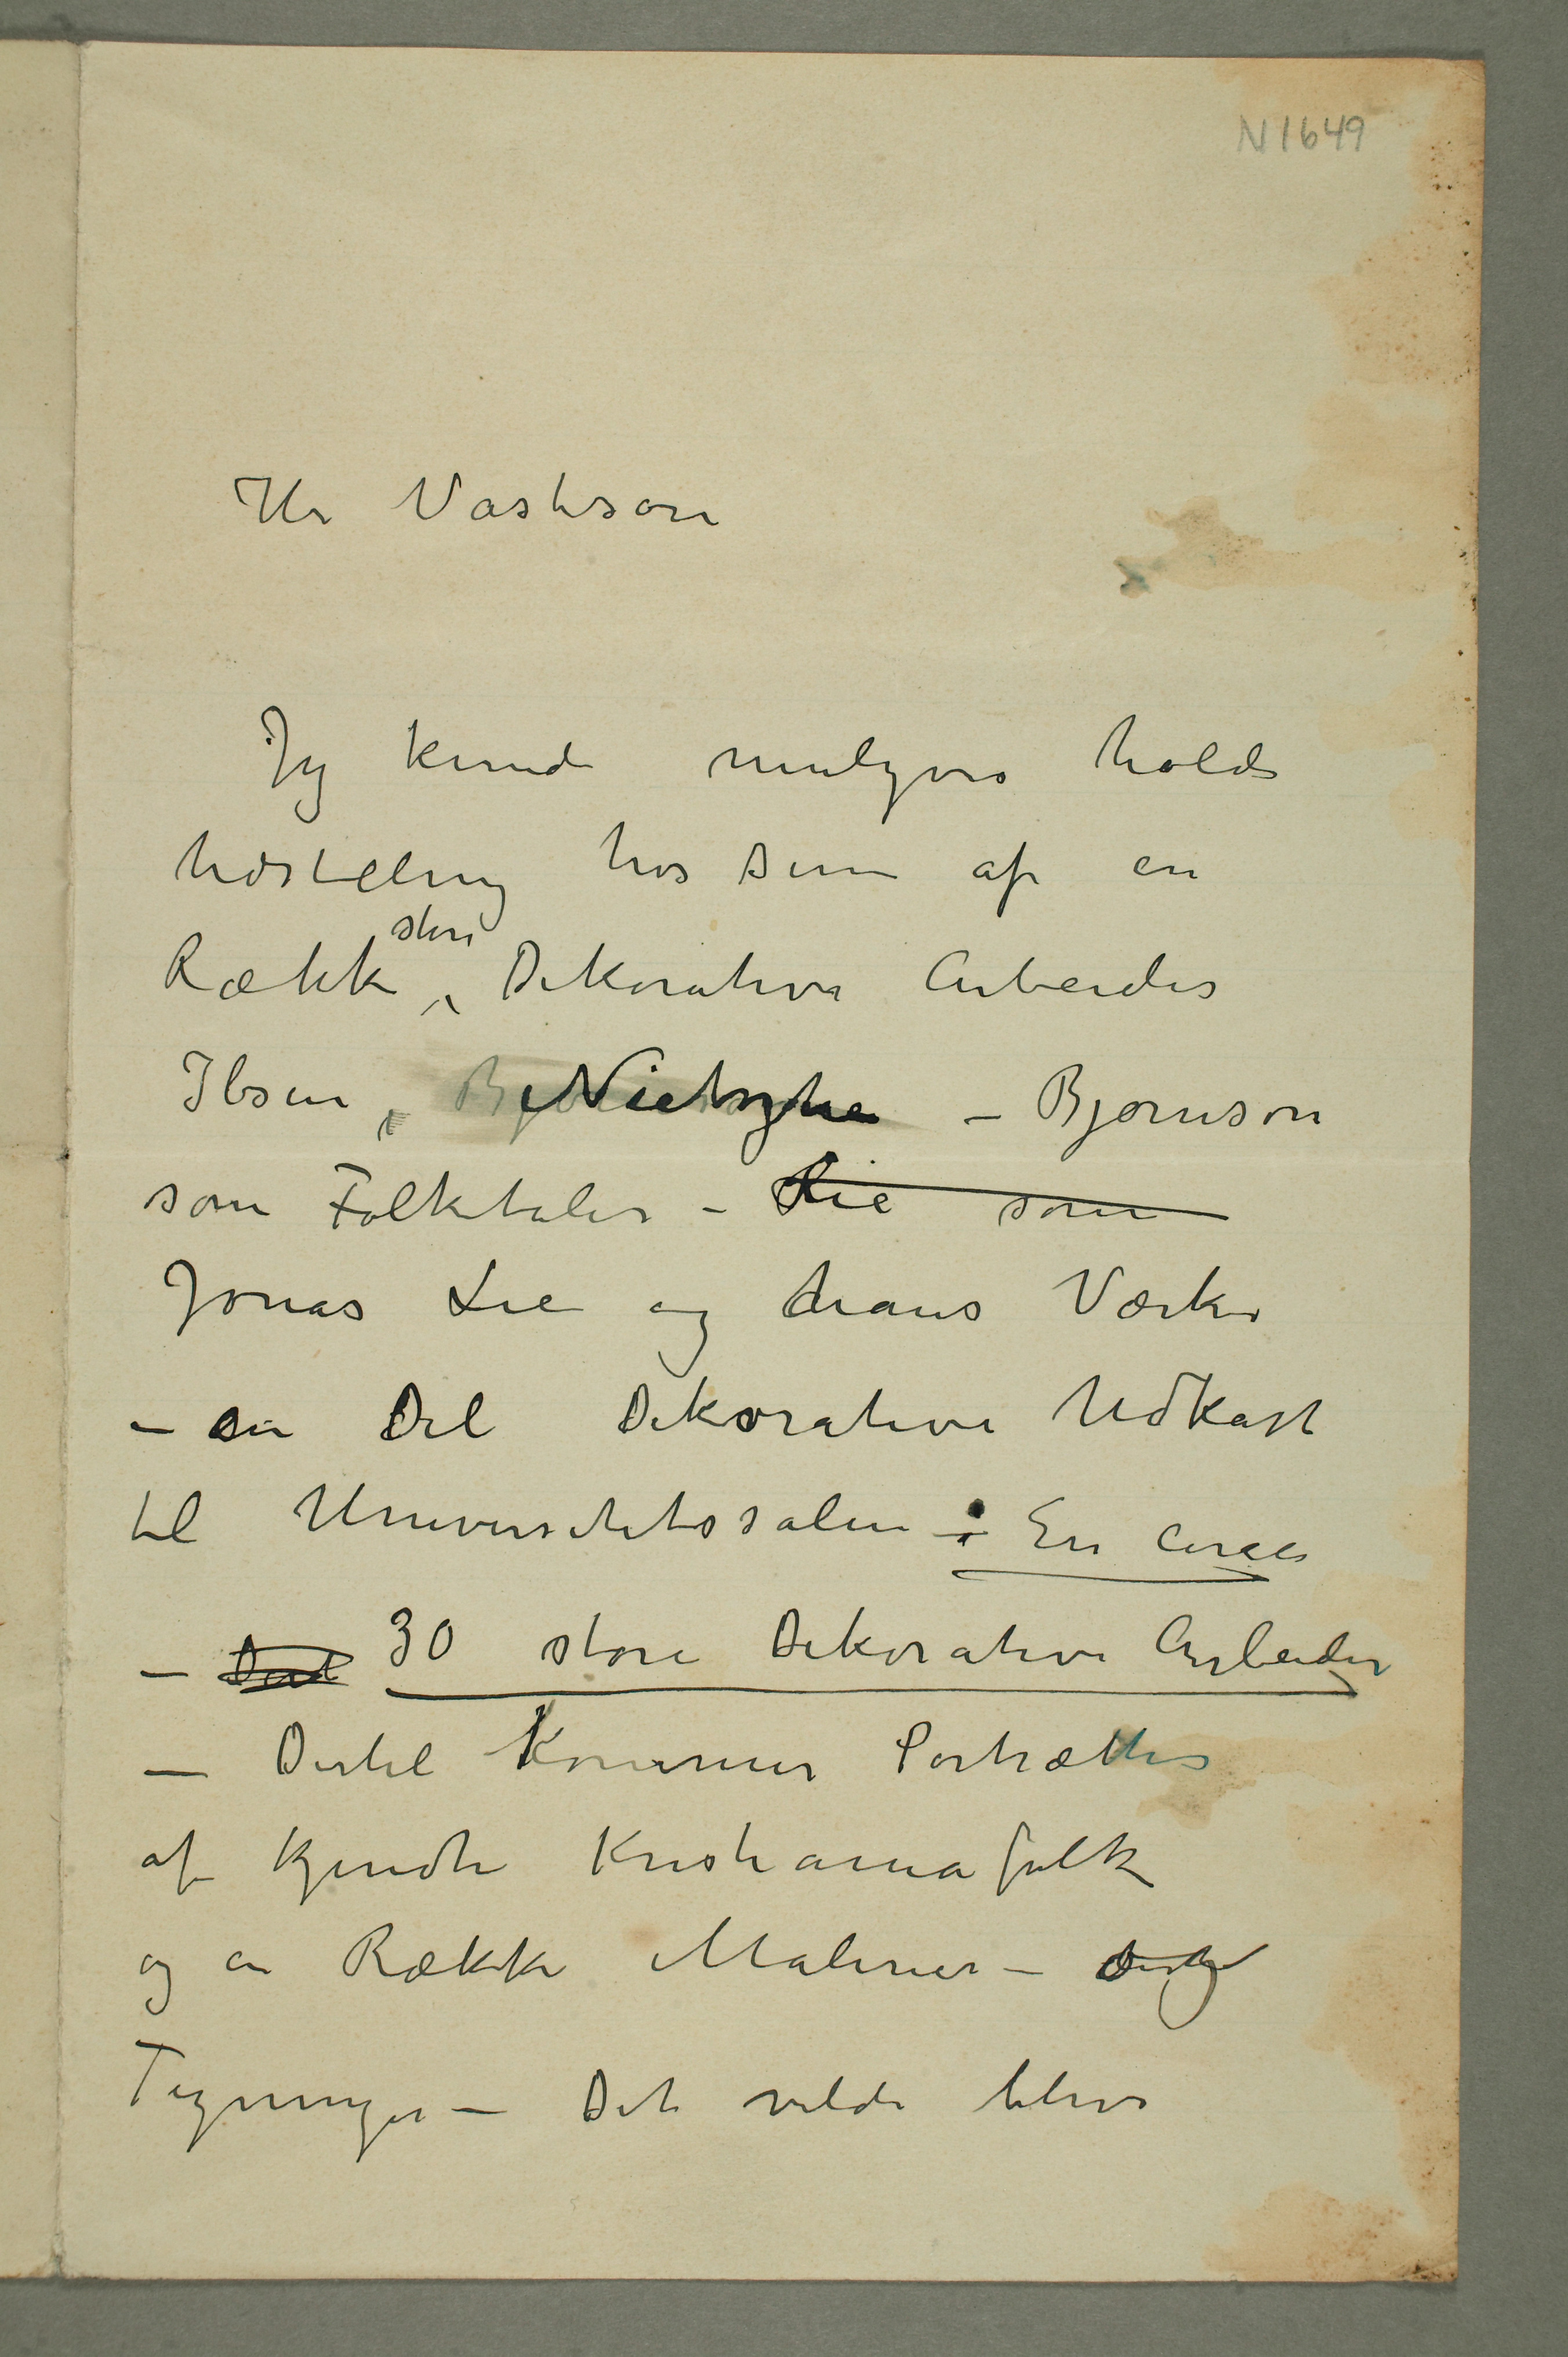 N 1649
Hr Vastson
Jeg kunde muligvis holde
Udstelling hos Dem af en
Række store Dekorative Arbeider
Ibsen, Nietszhe – Bjørnson
som Folketaler – Lie som
Jonas Lie og hans Værker
– en Del Dekorative Udkast
til Universitetssalen – En cirka
– 30 store Dekorative Arbeider
– Dertil kommer Portrætter
af kjendte Kristianiafolk
og en Række Malerier –
Tegninger – Det vilde blive